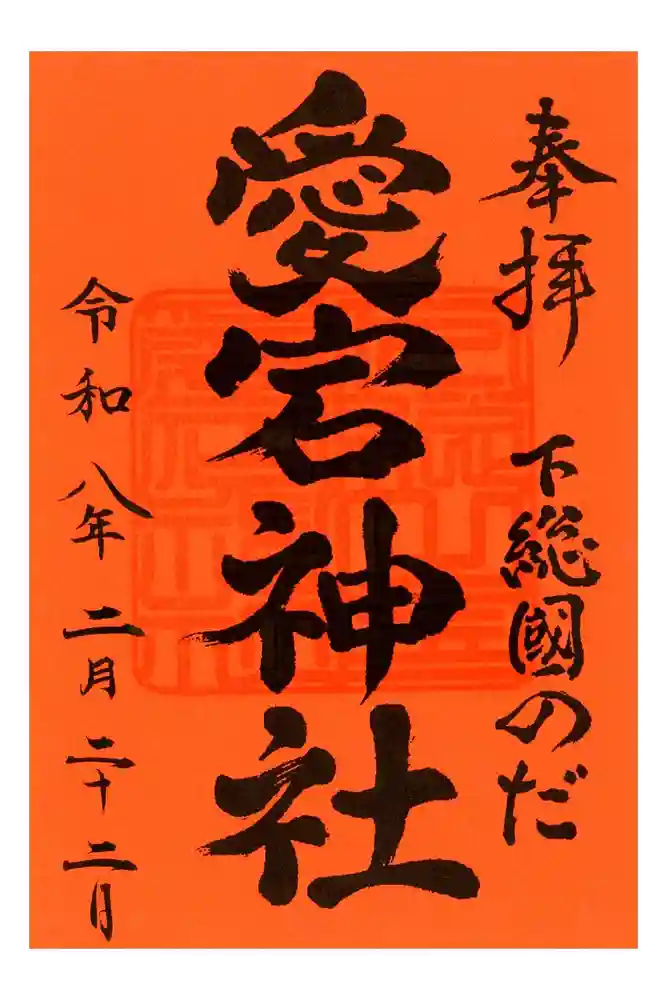 奉拝　下総國のだ
愛宕神社
令和八年二月二十二日